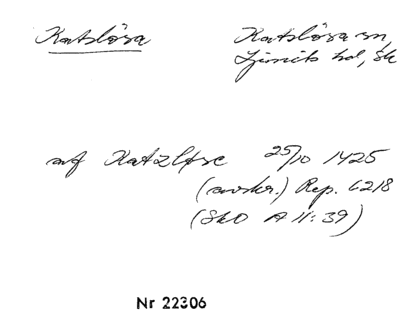 Katslösa
Katslösa sn,
Ljunits hd, Sk
af Katzløse 25/10 1425
(avskr.) Rep. 6218
(SkO A II: 39)
Nr 22306